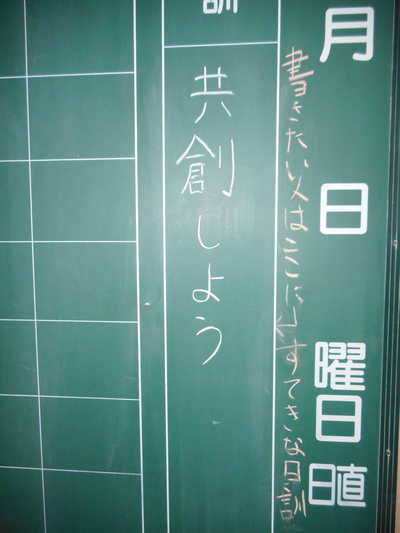 月 日 曜日 日直
書きたい人はここに↓すてきな日訓
訓
共創しよう